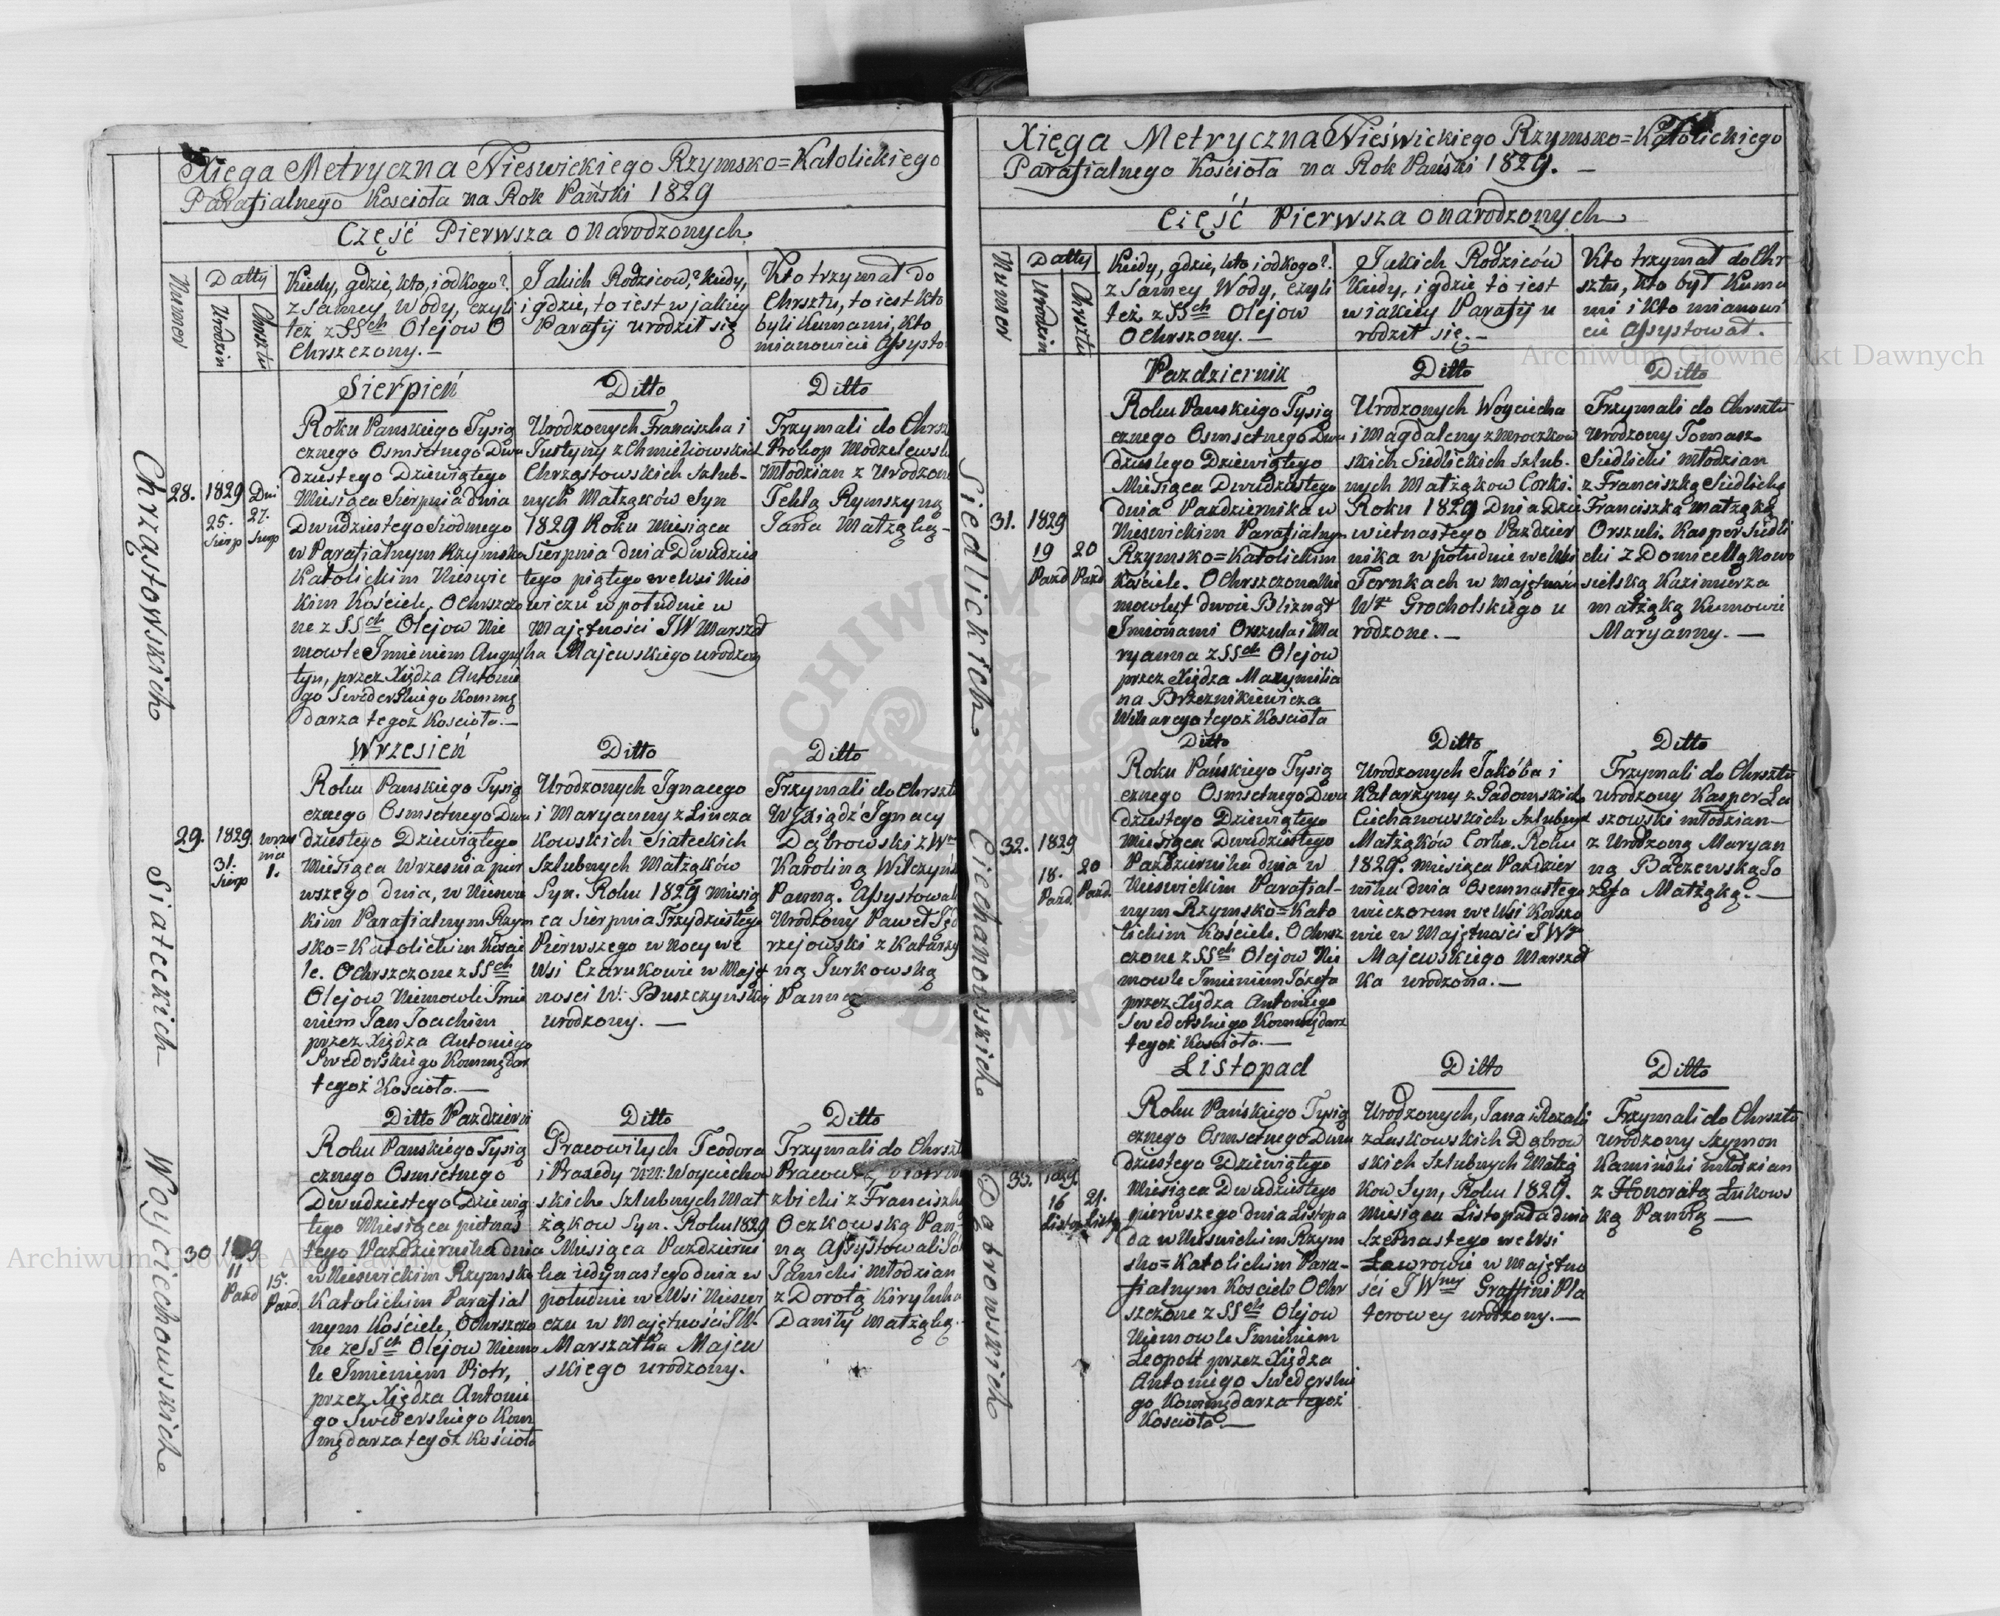 Xięga Metryczna Nieswickiego Rzymsko=Katolickiego
Parafialnego Kościoła na Rok Pański 1829
Część Pierwsza o Narodzonych
Numer
Datty
Urodzin
Chrsztu
Kiedy, gdzie, kto, i od kogo?
z Samey Wody, czyli
też z SSch Olejow O
Chrszczony.—
Jakich Rodzicow? kiedy,
i gdzie, to iest w jakiey
Parafij urodził się
Kto trzymał do
Chrsztu, to iest kto
byli Kumami, kto
mianowicie Assysto
Chrząstowskich
28.
1829
25.
Sierp
Dni
27.
Sierp
Sierpień
Roku Panskiego Tysią
cznego Osmsetnego Dwu
dziestego Dziewiątego
Miesiąca Sierpnia dnia
Dwudziestego Siodmego
w Parafialnym Rzymsko
Katolickim Nieswic
kim Kościele, Ochrszczo
ne z SSch Olejow Nie
mowle Imieniem Augus
tyn, przez Xiędza Antonie
go Swiderskiego Kommę
darza tegoż Kościoła.—
Ditto
Urodzonych Franciszka i
Justyny z Chmielowskich
Chrząstowskich Szlub-
nych Małżąków Syn
1829 Roku Miesiąca
Sierpnia dnia Dwudzies
tego piątego we Wsi Nies
wiczu w południe w
Majętności JW Marszał
ka Majewskiego urodzony
Ditto
Trzymali do Chrsz
Prokop Modzelewski
Młodzian z Urodzoną
Teklą Rymszyną
Jana Małżąką—
Siateckich
29.
1829
31.
Sierp
wrześ
nia
1.
Wrzesień
Roku Panskiego Tysią
cznego Osmsetnego Dwu
dziestego Dziewiątego
Miesiąca Wrzesnia pier
wszego dnia, w Nieswic
kim Parafialnym Rzym
sko=Katolickim Koscie
le. Ochrszczone z SSch
Olejow Niemowle Imie
niem Jan Joachim
przez Xiędza Antoniego
Swederskiego Kommędar
tegoż Kościoła.—
Ditto
Urodzonych Ignacego
i Maryanny z Lincza
kowskich Siateckich
Szlubnych Małżąków
Syn. Roku 1829 Miesią
ca Sierpnia Trzydziestego
Pierwszego w nocy we
Wsi Czarukowie w Mają
nosci W: Buszczyńskiej
urodzony.—
Ditto
Trzymali do Chrszt
W Xiądź Ignacy
Dąbrowski z W
Karoliną Wilczyńs
Panną. Assystowali
Urodzony Paweł Jęd
rzejowski z Katarzy
ną Jurkowską
Panną
Woyciechowskich
30
1829
11
Pazd
15.
Pazd.
Ditto Pazdziern
Roku Panskiego Tysią
cznego Osmsetnego
Dwudziestego Dziewią
tego Miesiąca pietnas
tego Pazdziernika dnia
w Nieswickim Rzymsko
Katolickim Parafial
nym Kościele, Ochrszczo
ne ze SSch Olejow Niemow
le Imieniem Piotr,
przez Xiędza Antonie
go Swiderskiego Kom
mędarza tegoż Kościoła
Ditto
Pracowitych Teodora
i Praxedy Woyciechow
skich Szlubnych Mał
żąkow Syn. Roku 1829
Miesiąca Pazdzierni
ka iedynastego dnia w
południe we Wsi Nieswi
czu w Majętności JW.
Marszałka Majew
skiego urodzony.
Ditto
Trzymali do Chrszt
Pracowity
zbicki z Franciszką
Oczkowską Pan-
ną Assystowali Jó
Janicki Młodzian
z Dorotą Kiryluką
Daniły Małżąką.
Xięga Metryczna Nieświckiego Rzymsko=Katolickiego
Parafialnego Kościoła na Rok Pański 1829.—
Część Pierwsza o narodzonych
Numer
Datty
Urodzin
Chrsztu
Kiedy, gdzie, kto i od kogo?
z Samey Wody, czyli
też z SSch Olejow
Ochrszony.—
Jakich Rodziców
kiedy, i gdzie to iest
w iakiey Parafij u
rodził się.—
Kto trzymał do Chr
sztu, kto był Kuma
mi i kto mianowi
cie Assystował.
Siedlickich
31.
1829
19
Pazd
20
Pazd
Pazdziernik
Roku Panskiego Tysią
cznego Osmsetnego Dwu
dziestego Dziewiątego
Miesiąca Dwudziestego
dnia Pazdziernika w
Nieswickim Parafialnym
Rzymsko=Katolickim
Kościele. Ochrszczone Nie
mowląt dwoie Bliznąt
Imionami Orszula i Ma
ryanna z SSch Olejow
przez Xiędza Maxymilia
na Brzeznikiewicza
Wikarego tegoż Kościoła
Ditto
Urodzonych Woyciecha
i Magdaleny z Mroczkow
skich Siedlickich Szlub.
nych Małżąkow Corki.
Roku 1829 Dnia Dzie
wietnastego Pazdzier
nika w południe we Wsi
Tornkach w Majętności
W Grocholskiego u
rodzone.—
Ditto
Trzymali do Chrsztu
Urodzony Tomasz
Siedlicki Młodzian
z Franciszką Siedlicką
Franciszka Małżąką
Orszuli. Kasper Siedli
cki z Domicellą Kowo
sielską Kazimierza
małżąką Kumowie
Maryanny.—
Ciechanowskich
32.
1829
18.
Pazd.
20
Pazd.
Ditto
Roku Pańskiego Tysią
cznego Osmsetnego Dwu
dziestego Dziewiątego
Miesiąca Dwudziestego
Pazdziernika dnia w
Nieswickim Parafial-
nym Rzymsko=Kato
lickim Kościele. Ochrsz
czone z SSch Olejow Nie
mowle Imieniem Józefa
przez Xiędza Antoniego
Swederskiego Kommędarz
tegoż Kościoła.—
Ditto
Urodzonych Jakóba i
Katarzyny z Gadomskich
Ciechanowskich Szlubnych
Małżąków Corka. Roku
1829. Miesiąca Pazdzier
nika dnia Osemnastego
wieczorem we Wsi Korszo
wie w Majętności JW
Majewskiego Marszał
ka urodzona.—
Ditto
Trzymali do Chrsztu
urodzony Kasper La
szowski młodzian—
z Urodzoną Maryan
ną Baczewską Jó
zefa Małżąką.—
Dąbrowskich
33.
1829.
16
Listop
21.
Listop
Listopad
Roku Pańskiego Tysią
cznego Osmsetnego Dwu
dziestego Dziewiątego
Miesiąca Dwudziestego
pierwszego dnia Listopa
da w Nieswickim Rzym
sko=Katolickim Para-
fialnym Kosciele Ochr
szczone z SSch Olejow
Niemowle Imieniem
Leopold przez Xiędza
Antoniego Swederski
go Kommędarza tegoż
Kościoła.—
Ditto
Urodzonych, Jana i Rozali
z Łuskowskich Dąbrow
skich Szlubnych Małżą
kow Syn, Roku 1829.
Miesiąca Listopada dnia
Szesnastego we Wsi
Ławrowie w Majętno
ści JWney Graffini Pla
terowey urodzony.—
Ditto
Trzymali do Chrsztu
urodzony Szymon
Kamiński młodzian
z Honoratą Łukows
ką Panną—
Archiwum Główne Akt Dawnych
Archiwum Główne Akt Dawnych